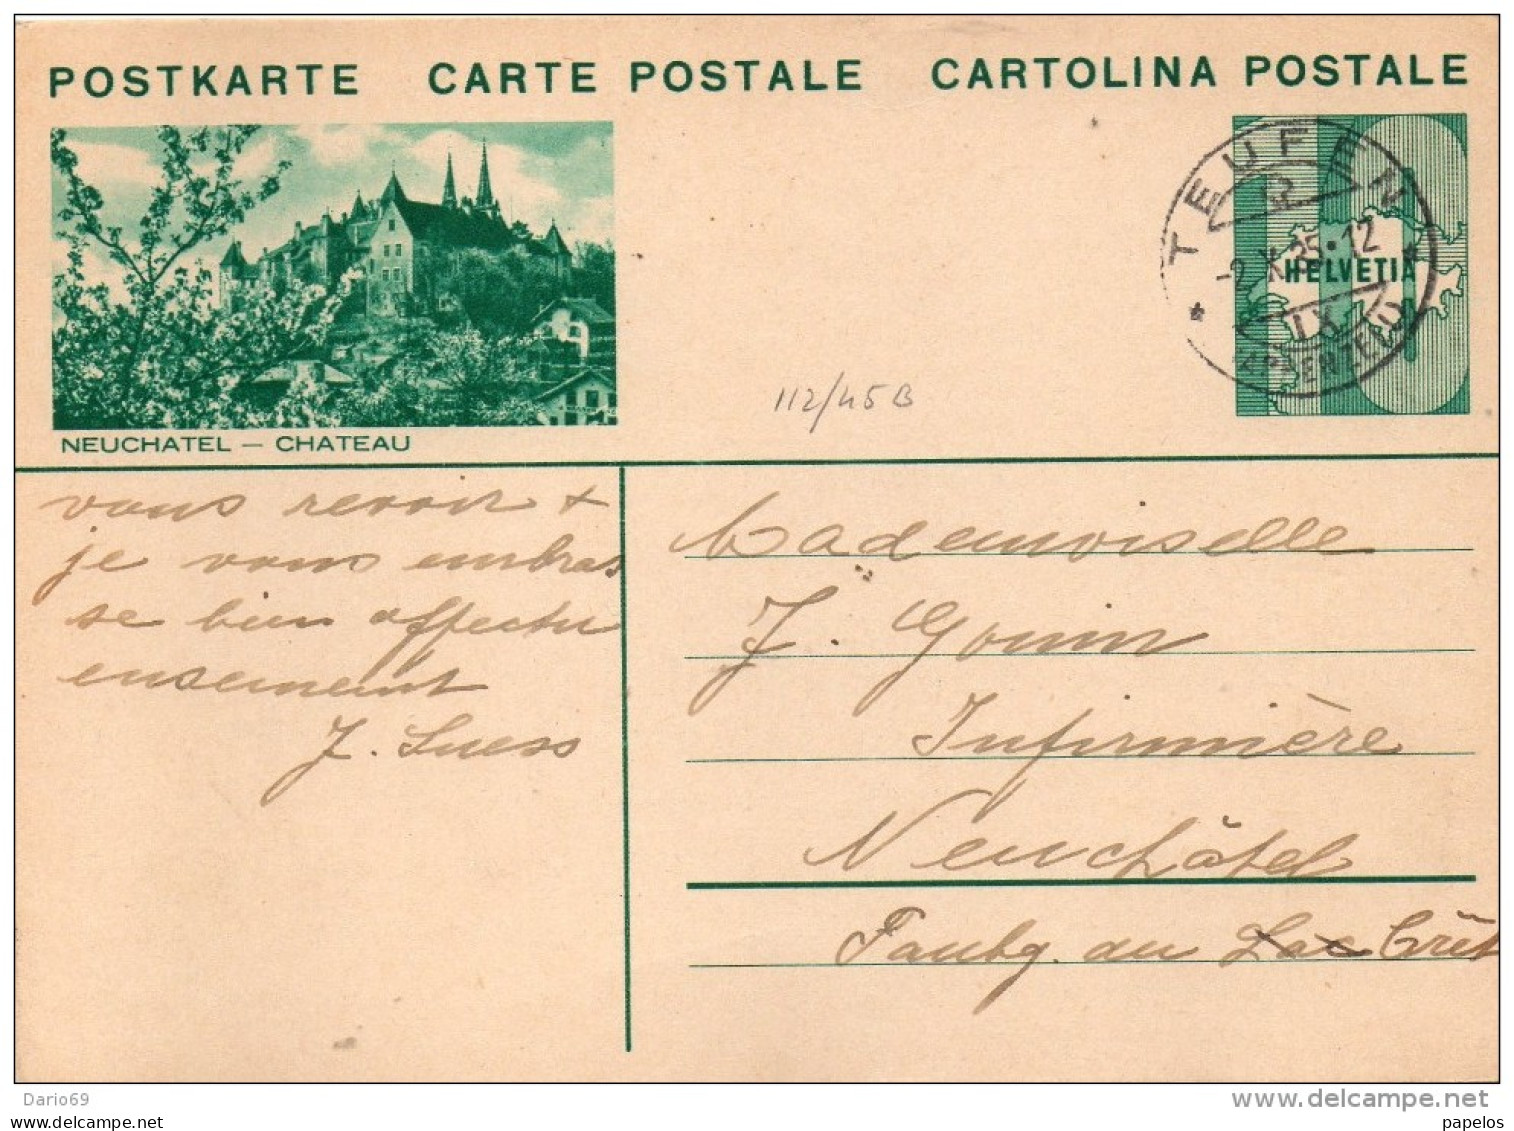 POSTKARTE CARTE POSTALE CARTOLINA POSTALE
TEUFEN
-2.X.35.12
IX
HELVETIA
112/45B
NEUCHATEL — CHATEAU
vous revoir +
je vous embras
se bien affectu
eusement
J. Suess
Mademoiselle
J. Gouin
Infirmière
Neuchâtel
Faubg. du Lac Crêt
Dario69
www.delcampe.net
papelos